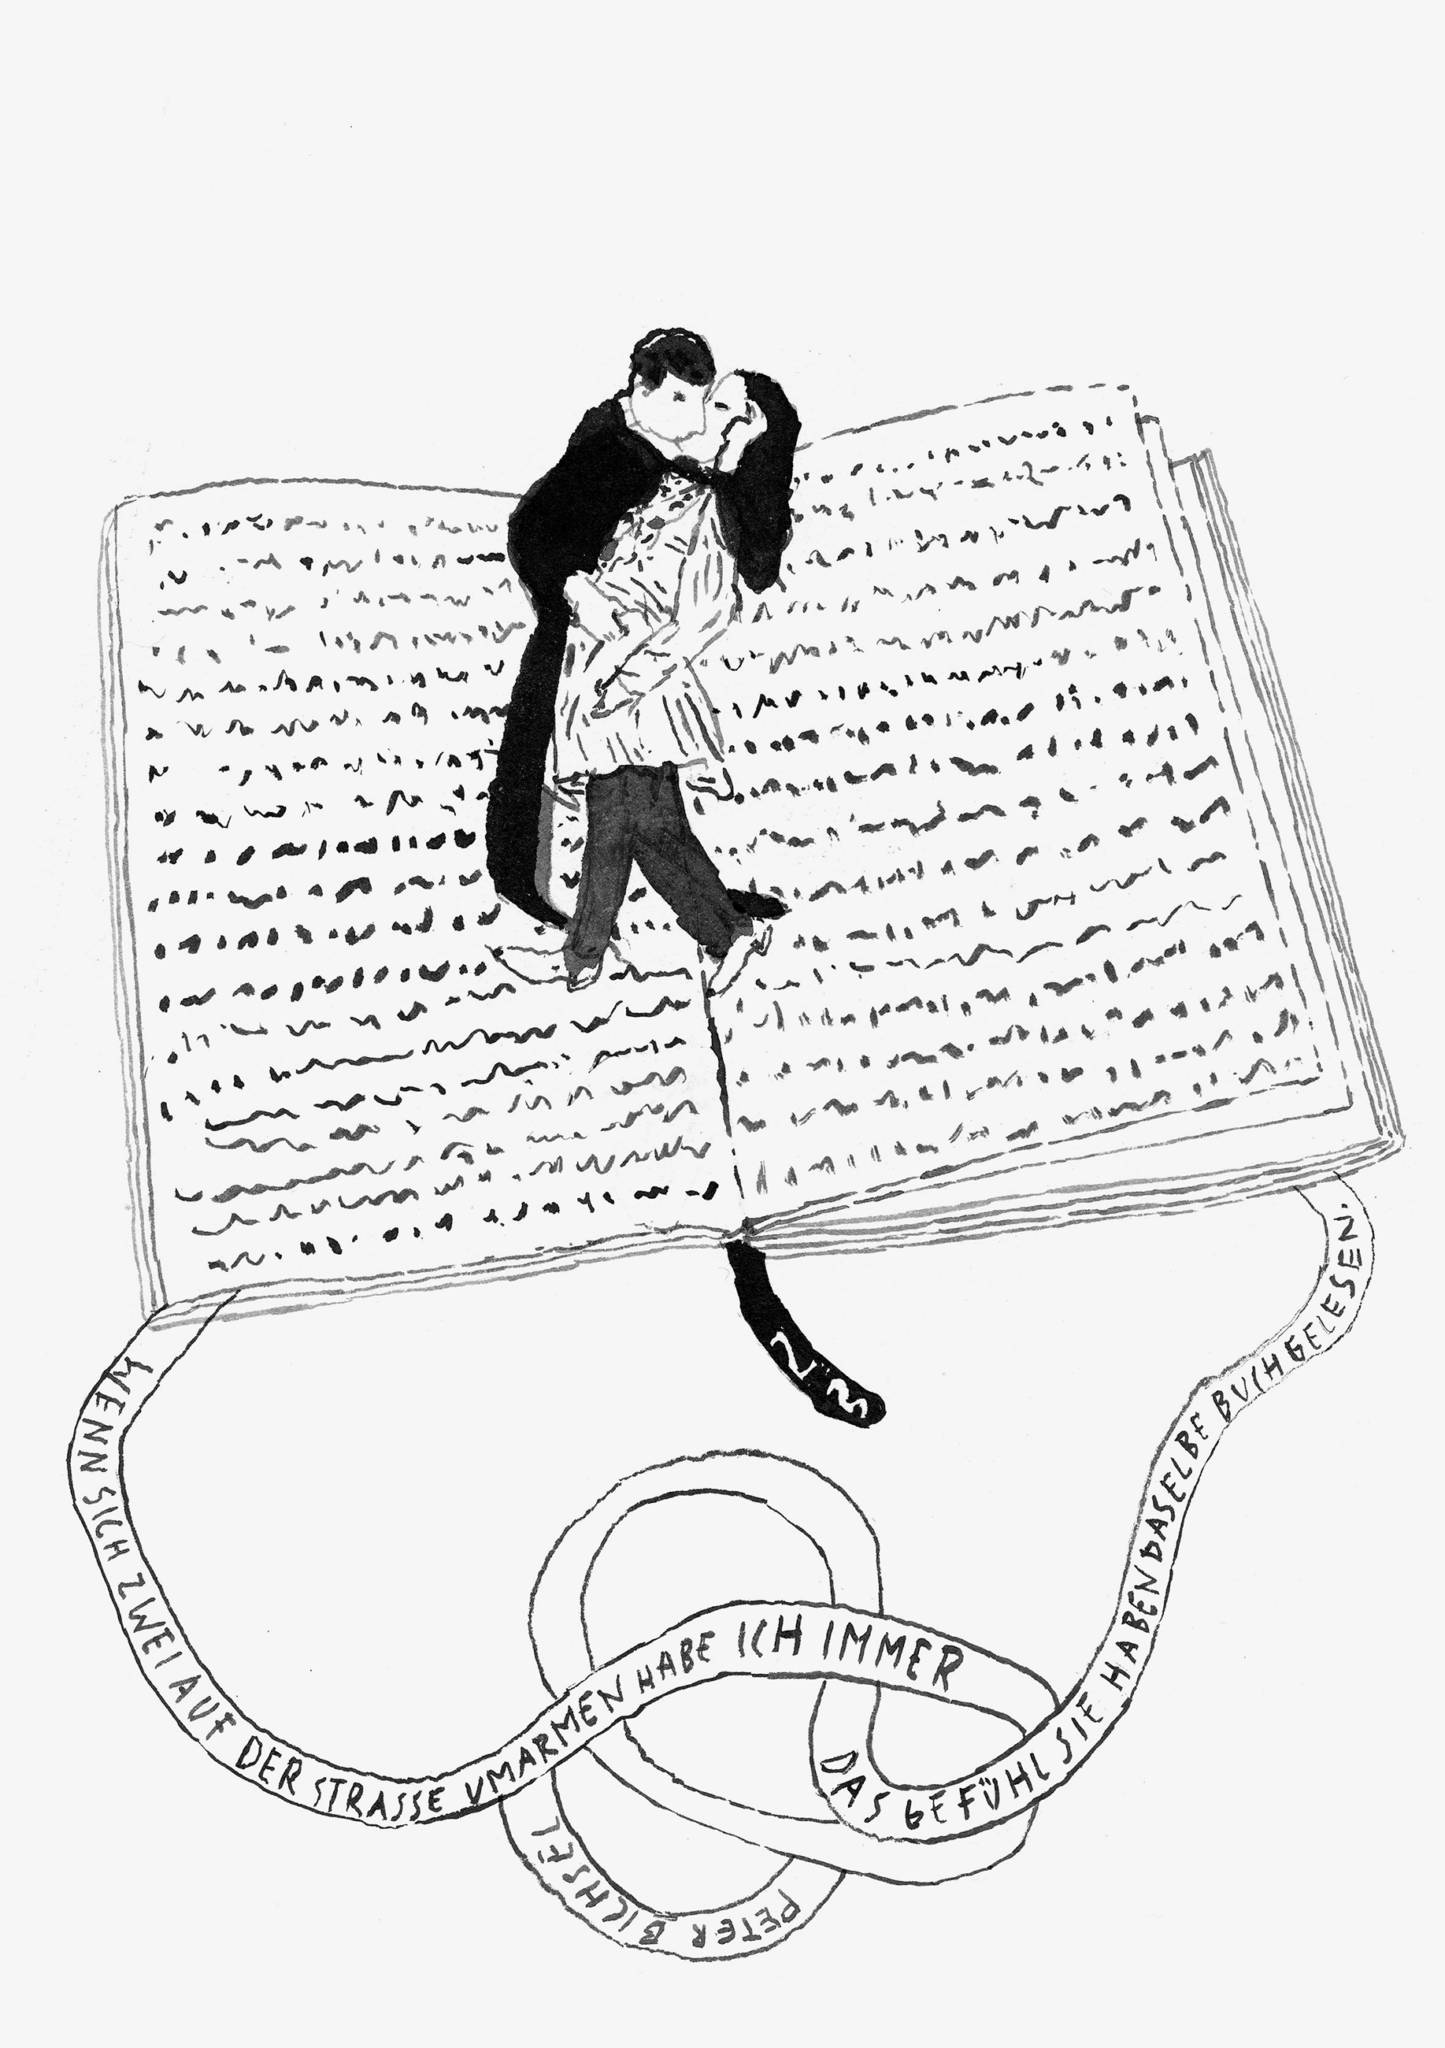 23
WENN SICH ZWEI AUF DER STRASSE UMARMEN HABE ICH IMMER
DAS GEFÜHL SIE HABEN DASELBE BUCH GELESEN.
PETER BICHSEL